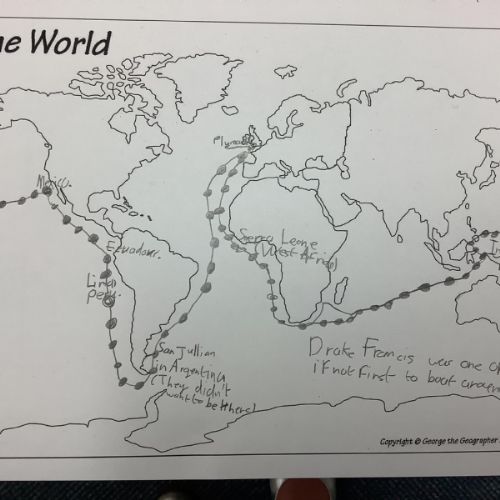 he World
Plymouth
Mexico.
Sierra Leone
(West Africa)
Ecuadour.
Lima
Peru.
San Jullian
in Argentina
(They didn't
want to be there)
Drake Francis was one of
if not first to boat around
Copyright © George the Geographer